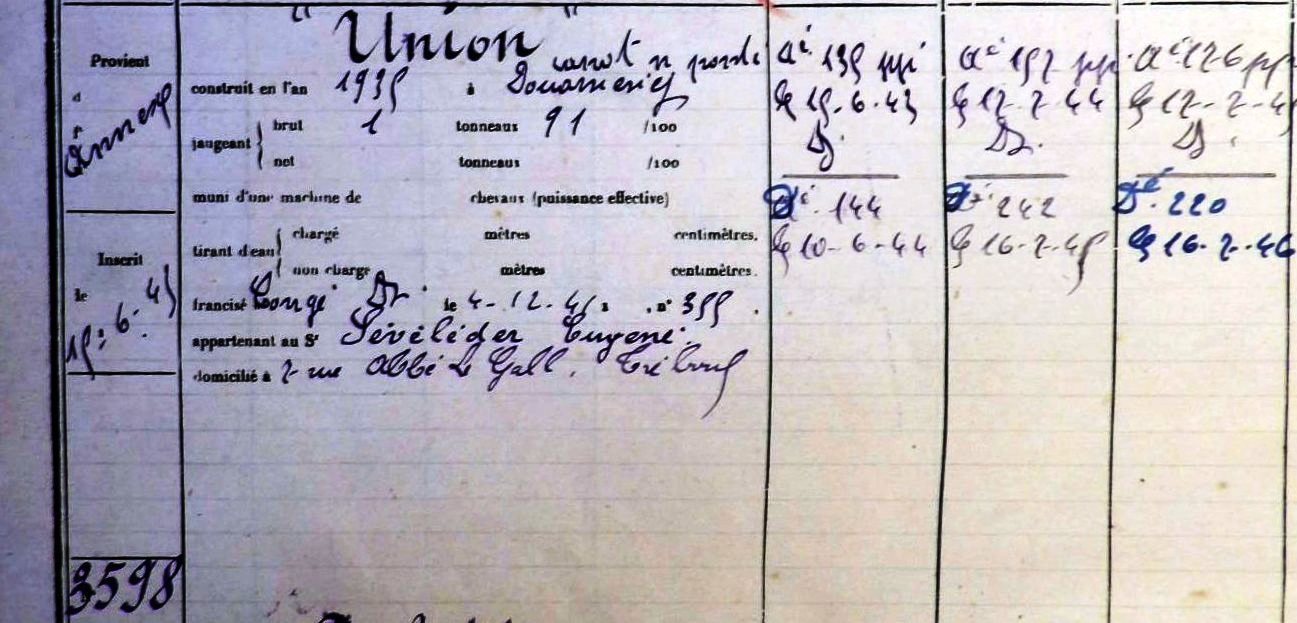 Provient
d
Annexe
Inscrit
le
3598
" Union " canot n ponté
construit en l'an 1935 à Douarnenez
jaugeant { brut 1 tonneaux 91 /100
net tonneaux /100
muni d'une machine de chevaux (puissance effective)
tirant d'eau { chargé mètres centimètres.
non chargé mètres centimètres.
francisé Congé Dz le 4-12-41 à , n° 355 .
appartenant au Sr Sévéléder Eugène.
domicilié à 7 rue Abbé Le Gall, Tréboul
Aé 135 ppi
Dz.
Dé. 144
le 10-6-44
Aé 157 ppi
le 17-7-44
Dz.
Dé 242
le 16-7-45
Aé 176 pp
Dz.
Dé. 220
le 16-7-46